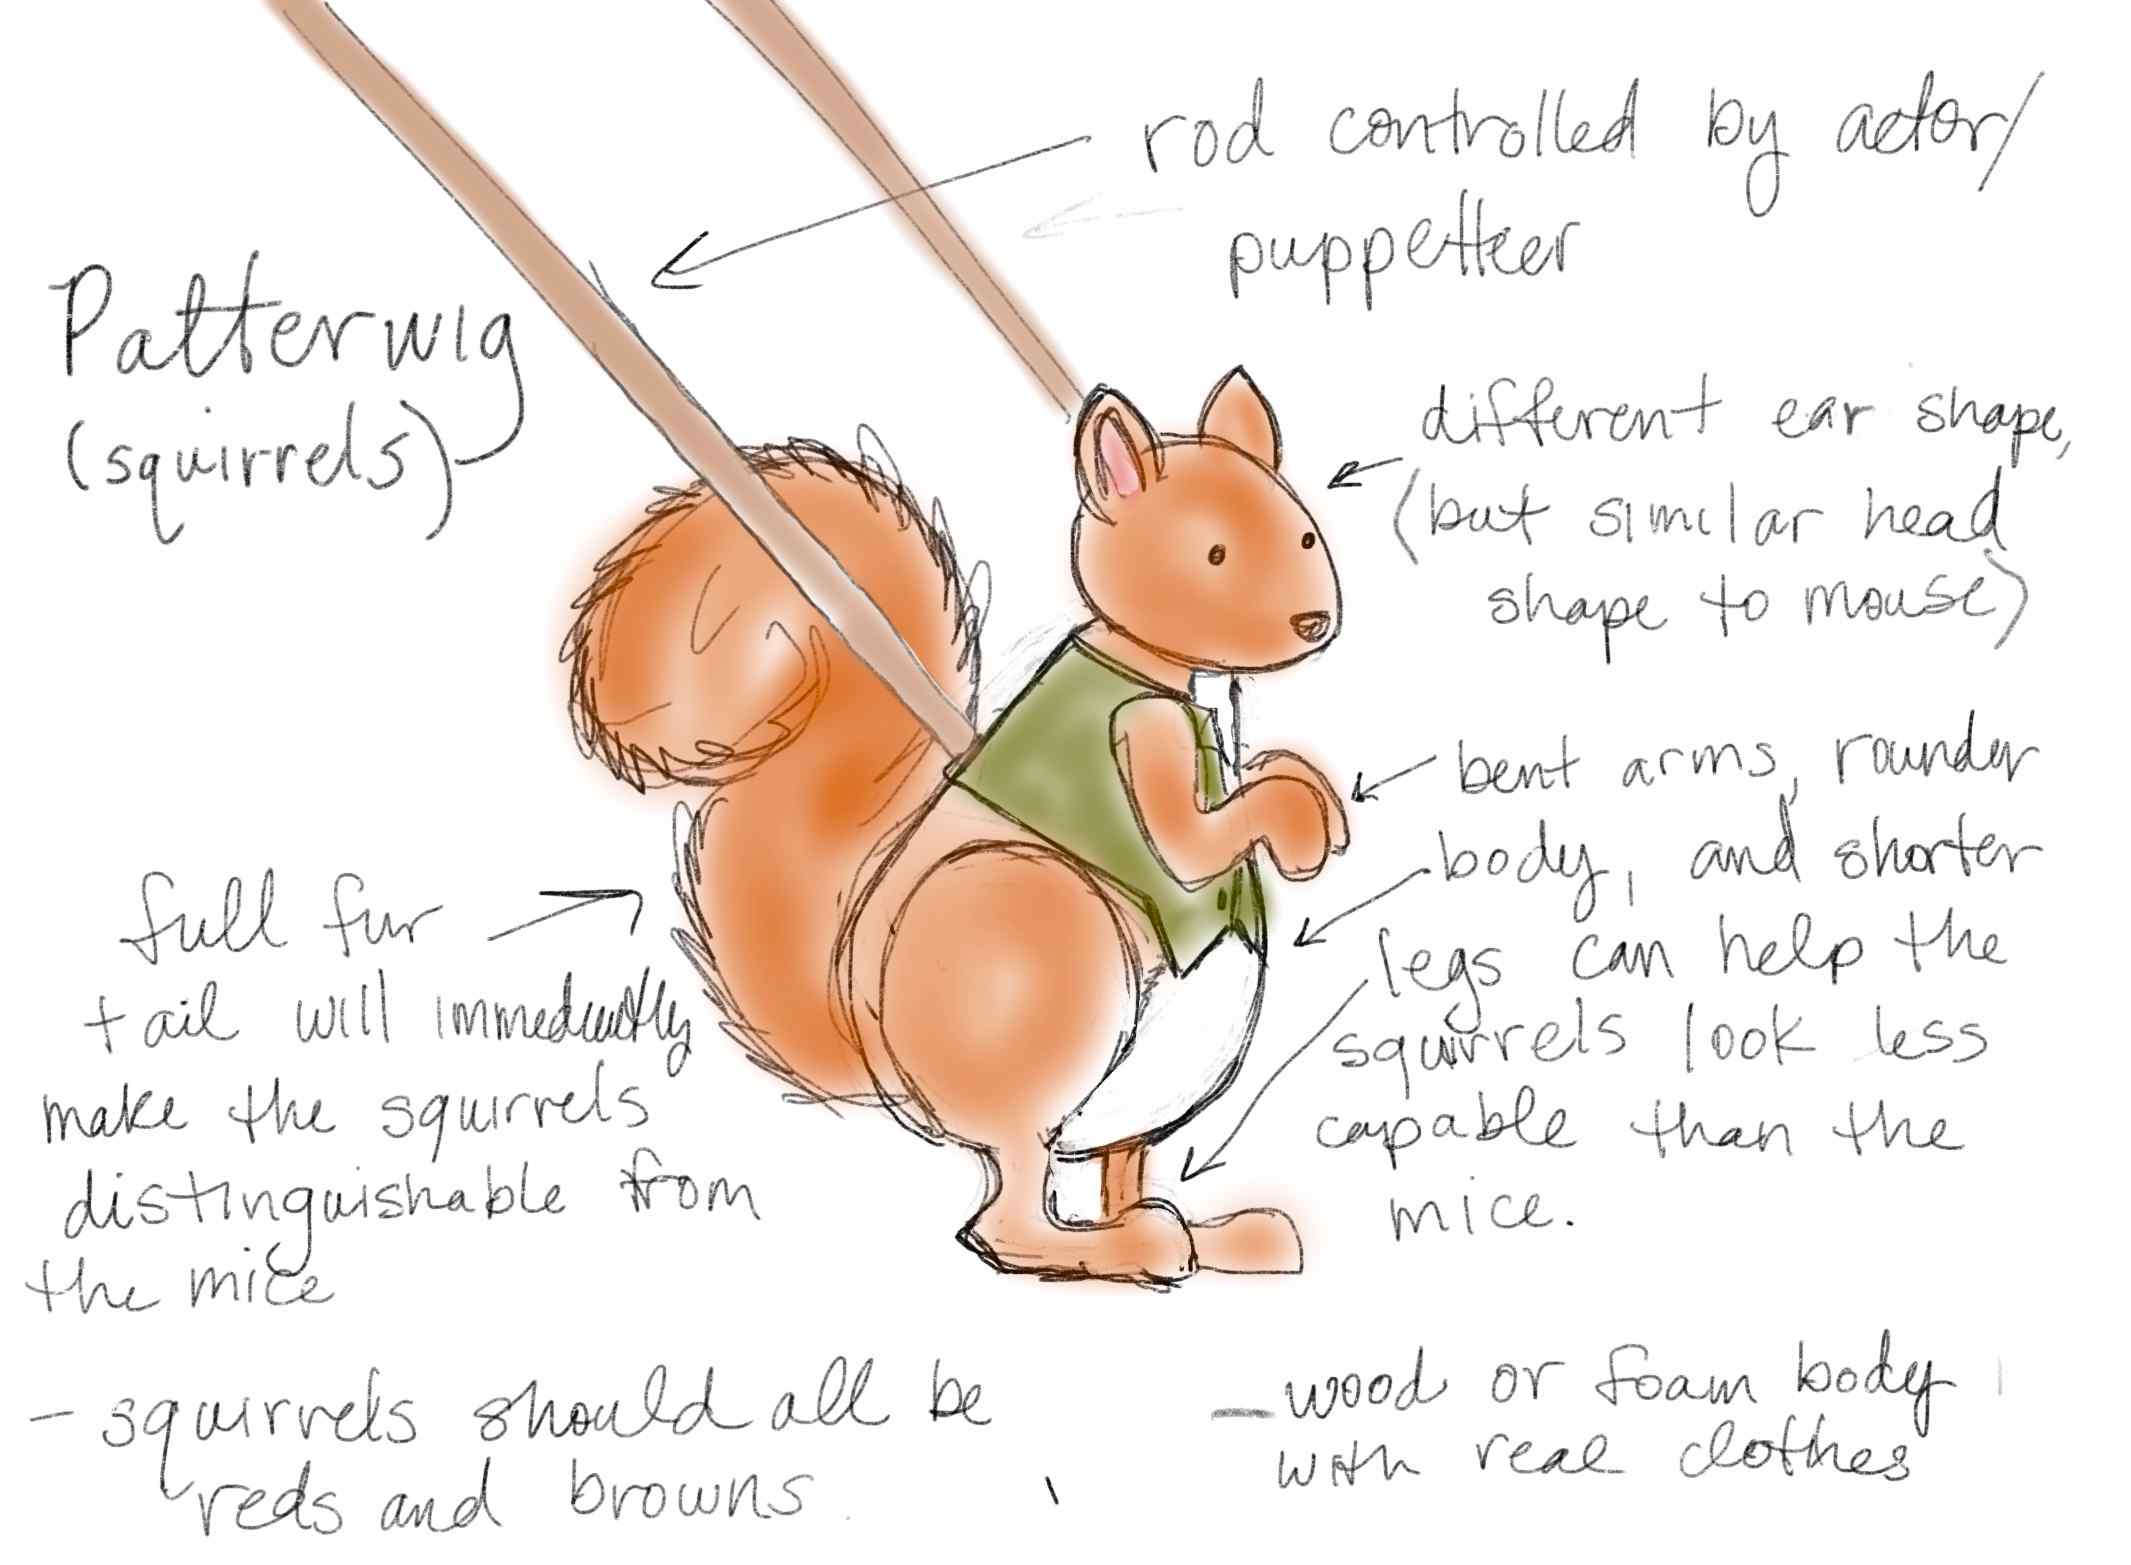 rod controlled by actor/
puppetteer
Patterwig
(squirrels)
different ear shape,
(but similar head
shape to mouse)
bent arms, rounder
body, and shorter
legs can help the
squirrels look less
capable than the
mice.
full fur
tail will immediately
make the squirrels
distinguishable from
the mice
- squirrels should all be
reds and browns
- wood or foam body
with real clothes